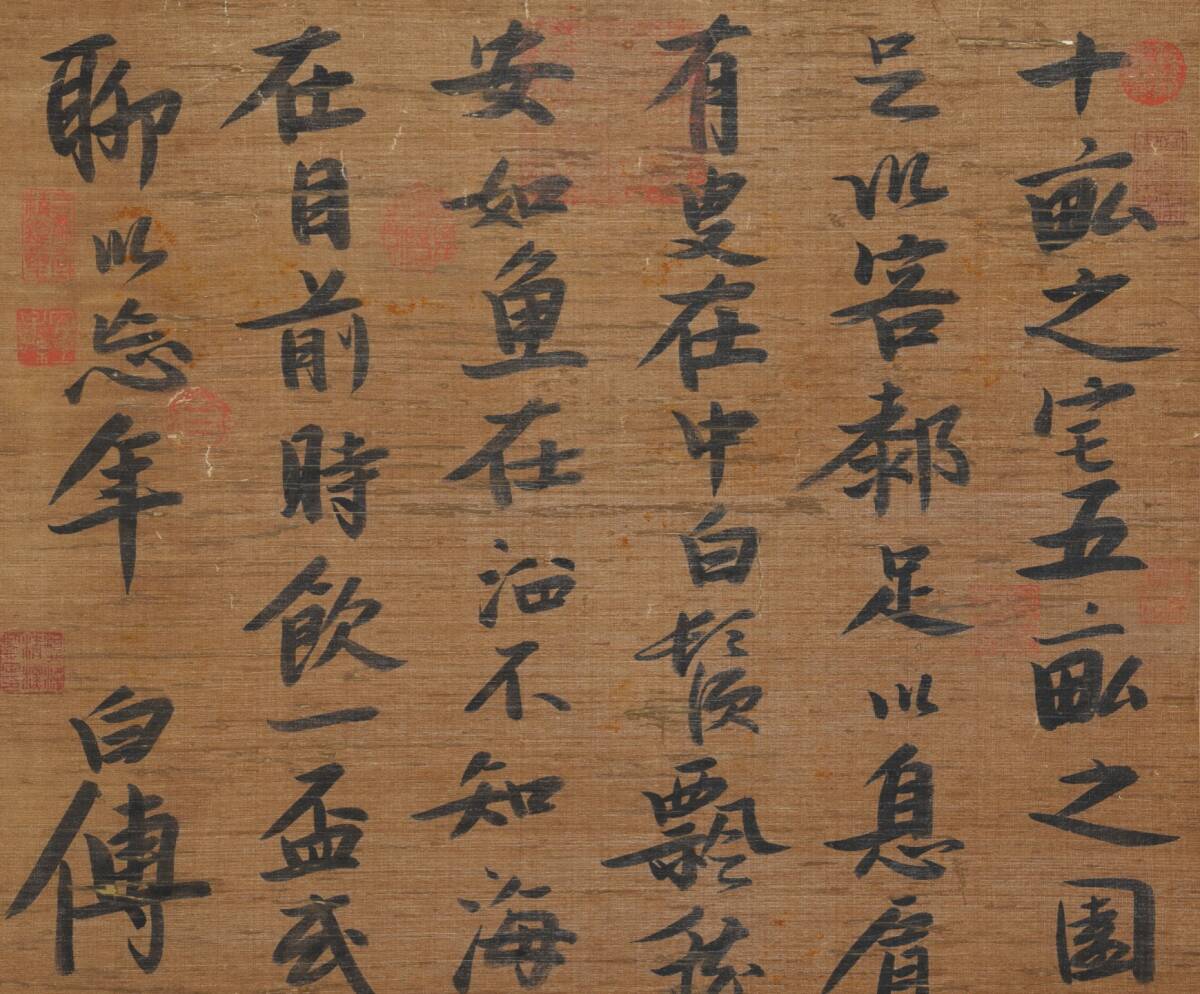 十畝之宅五畝之園
足以容鄰足以息肩
有叟在中白鬚飄然
安如魚在沼不知海
在目前時飲一盃或
聊以忘年 白傅